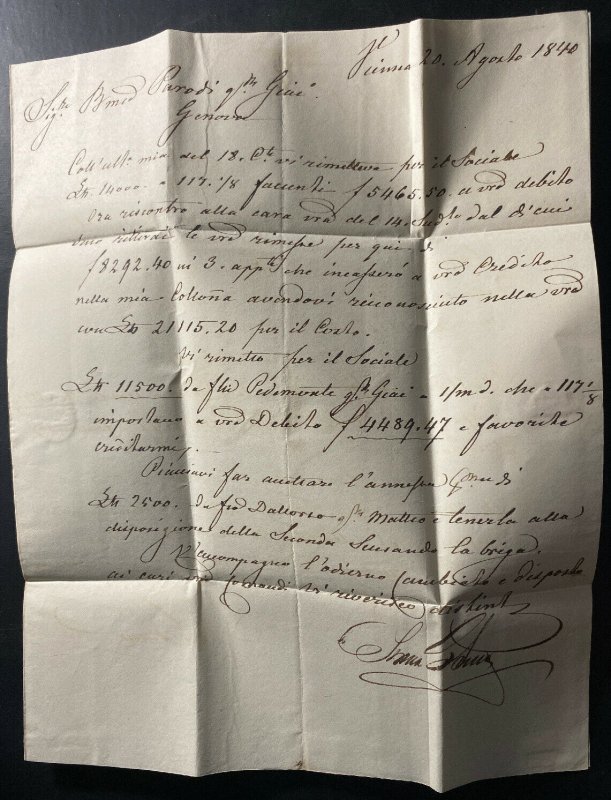 Vienna 20. Agosto 1840
Sigre Bmeo Parodi qm Giac.
Genova
Coll'ulta mia del 18. Cte vi rimetteva per il Sociale
14000. a 117.1/8 facenti f 5465.50. a vro debito
Ora riscontro alla cara vra del 14. Sudto dal di cui
le vre rimesse per qui di
f 8292.40 in 3. appti che incasserò a vro Credito
nella mia avendovi riconosciuto nella vra
con 21115.20 per il Costo.
Vi rimetto per il Sociale
11500 da flli Pedemonte qm Giac a 1/m d. che a 117 1/8
importano a vro Debito f 4489.47 e favorite
creditarmi.
Piacciavi far accettare l'annessa di
2500. da Dallorso qm Matteo e tenerla alla
disposizione della Seconda Scusando la briga.
V'accompagno l'odierno Cambietto e disposto
ai cari vri Comandi Vi riverisco distint